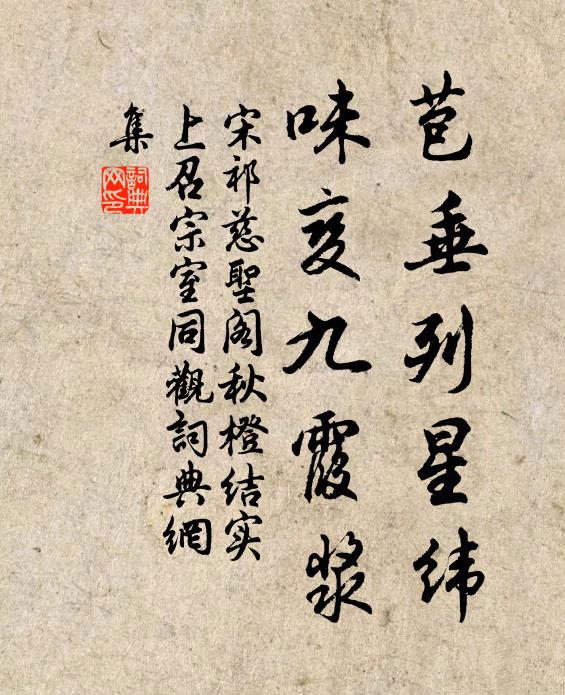 苞垂列星緯
味变九霞漿
宋祁慈聖阁秋橙结实
上召宗室同觀詞典網
集
詞典网印